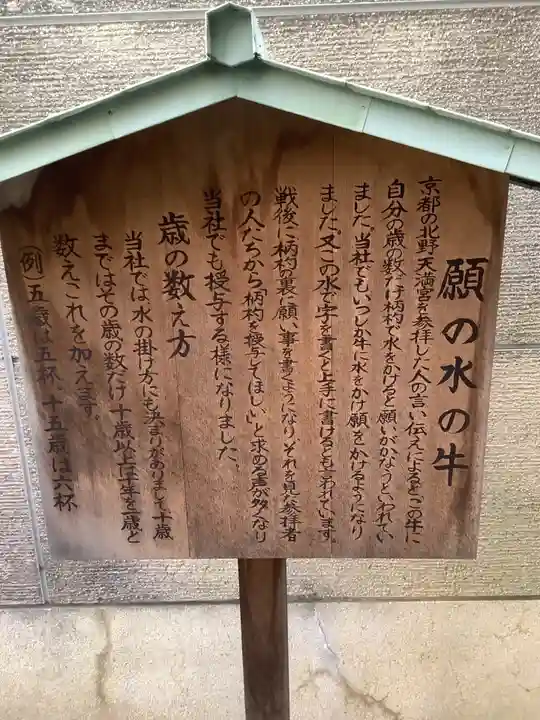 願の水の牛
京都の北野天満宮を参拝した人の言い伝えによるとこの牛に
自分の歳の数だけ柄杓で水をかけると願いがかなうといわれてい
ました。当社でもいつしか牛に水をかけ願をかけるようになり
ました。又この水で字を書くと上手に書けるとも云われています。
戦後に柄杓の裏に願い事を書くようになりそれを見た参拝者
の人たちから「柄杓を授与してほしい」と求める声が多くなり
当社でも授与する様になりました。
歳の数え方
当社では水の掛け方にも決まりがありまして十歳
まではその歳の数だけ十歳以上は十年を一歳と
数えこれを加えます。
(例)五歳は五杯 十五歳は六杯